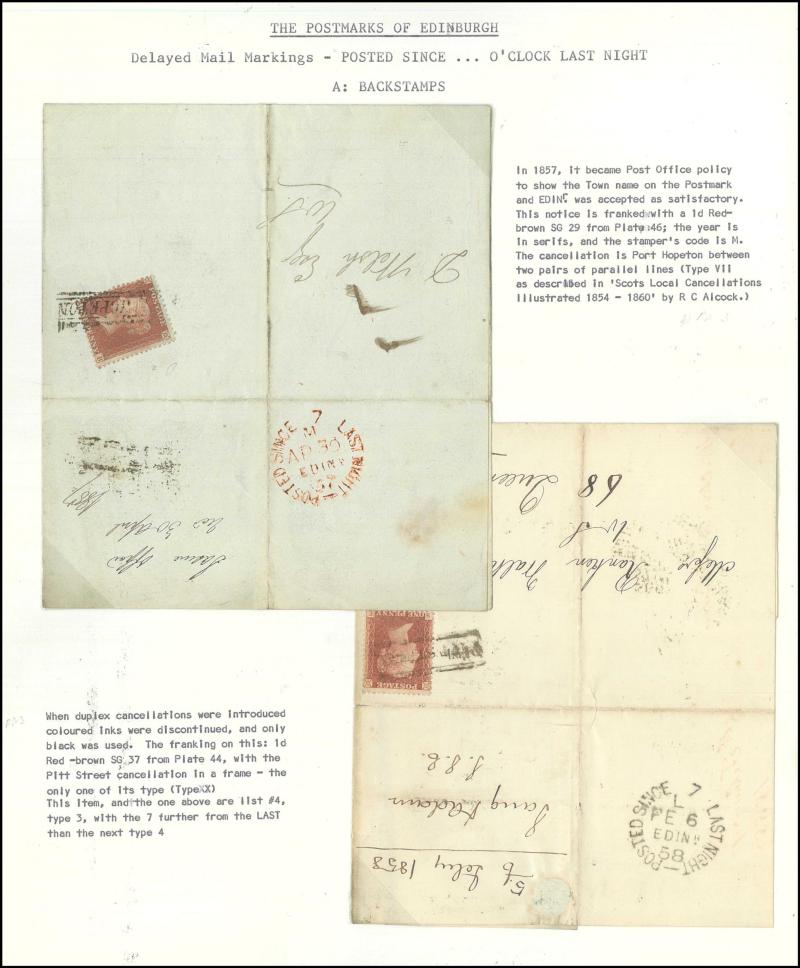 THE POSTMARKS OF EDINBURGH
Delayed Mail Markings - POSTED SINCE ... O'CLOCK LAST NIGHT
A: BACKSTAMPS
In 1857, it became Post Office policy
to show the Town name on the Postmark
and EDINR was accepted as satisfactory.
This notice is franked with a 1d Red-
brown SG 29 from Plate 46; the year is
in serifs, and the stamper's code is M.
The cancellation is Port Hopeton between
two pairs of parallel lines (Type VII
as described in 'Scots Local Cancellations
Illustrated 1854 - 1860' by R C Alcock.)
D. Welsh Esq
W.S.
POSTED SINCE 7 LAST NIGHT
M
AP 30
EDINR
57
30 April
1857
When duplex cancellations were introduced
coloured inks were discontinued, and only
black was used. The franking on this: 1d
Red -brown SG 37 from Plate 44, with the
Pitt Street cancellation in a frame - the
only one of its type (TypeXX)
This item, and the one above are list #4,
type 3, with the 7 further from the LAST
than the next type 4
Rankin
W.S.
68 Queen
POSTAGE
ONE PENNY
5/6 Feby 1858
POSTED SINCE 7 LAST NIGHT
L
FE 6
EDINR
58